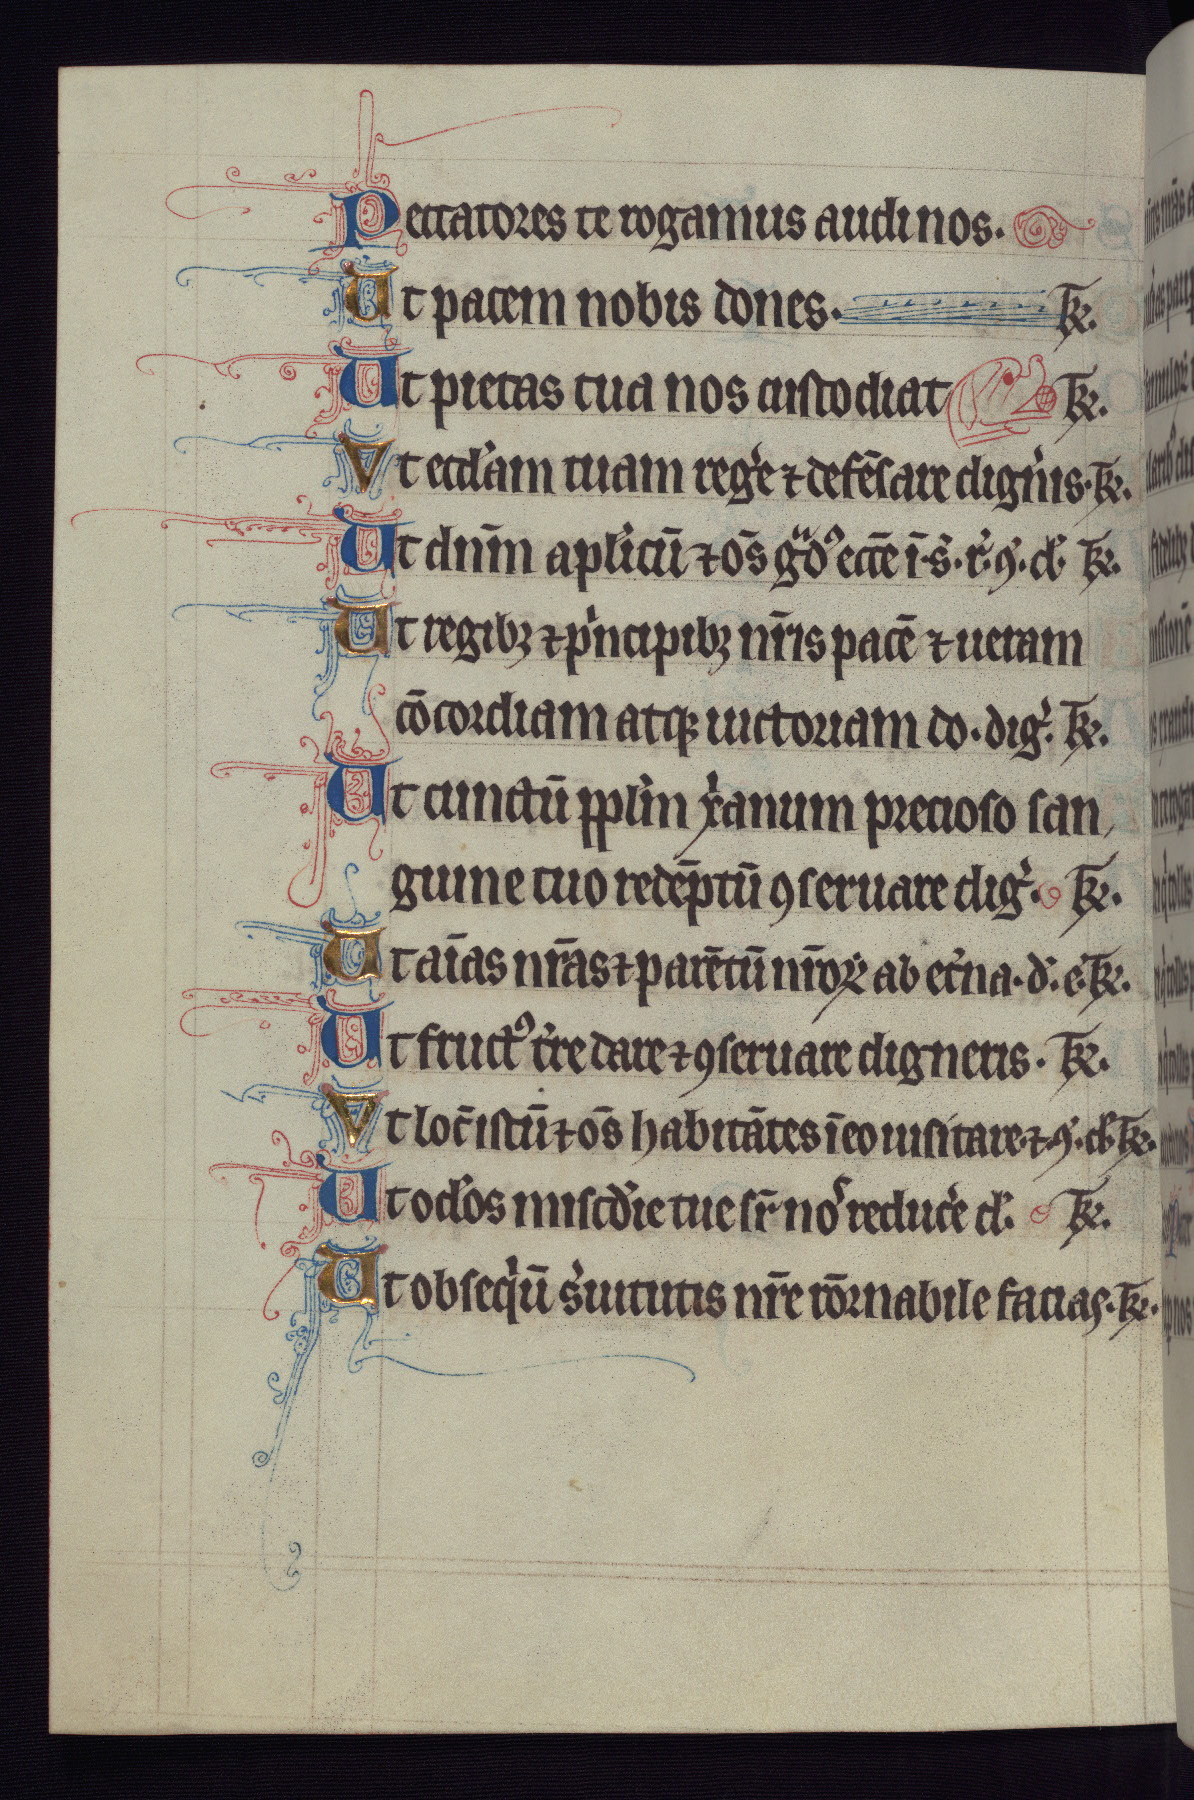 Peccatores te rogamus audi nos.
Ut pacem nobis dones. Te r̃.
Ut pietas tua nos custodiat Te r̃.
Vt eccl'am tuam reg'e ⁊ defēsare dign'is. Te r̃.
Ut dn̄m ap'licū ⁊ om̄s gͣdꝰ ecc̄e ī. s. r'. ꝯ. d'. Te r̃.
Ut regibꝫ ⁊ p'ncipibꝫ nr̄is pacē ⁊ ueram
cōcordiam atqꝫ uictoriam do. dig'. Te r̃.
Ut cunctū ppl'm xp̄'anum precioso san
guine tuo redēptū ꝯseruare dig'. Te r̃.
Ut aīas nr̄as ⁊ parētū nr̄oꝝ ab et'na. d'. e'. Te r̃.
Ut fructꝰ t're dare ⁊ ꝯseruare digneris. Te r̃.
Vt loc̄ istū ⁊ om̄s habitātes ī eo uisitare ⁊ ꝯ'. d'. Te r̃.
Ut oc'l'os mis'cd'ie tue sr̄ noˢ reduc'e d'. Te r̃.
Ut obseq'ū s'uitutis nr̄e rōrnabile facias. Te r̃.